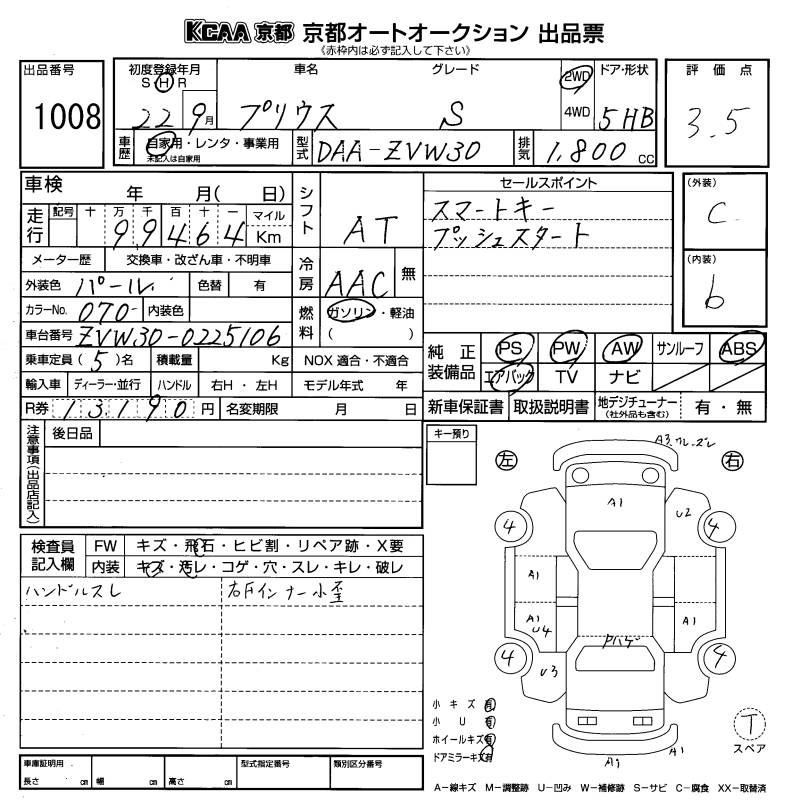 KCAA 京都 京都オートオークション 出品票
《赤枠内は必ず記入して下さい》
出品番号
1008
初度登録年月
S H R
22 9月
車名
プリウス
グレード
S
2WD
4WD
ドア・形状
5HB
評価点
3.5
車歴
自家用・レンタ・事業用
未記入は自家用
型式
DAA-ZVW30
排気
1,800 cc
車検
年 月( 日)
走行
記号 十 万 千 百 十 一
99464
マイル
Km
メーター歴 交換車・改ざん車・不明車
外装色 パール 色替 有
カラーNo. 070 内装色
車台番号 ZVW30-0225106
乗車定員 (5)名 積載量 Kg
輸入車 ディーラー・並行 ハンドル 右H・左H
R券 13190 円 名変期限 月 日
シフト
AT
冷房
AAC 無
燃料
ガソリン・軽油
( )
NOX 適合・不適合
モデル年式 年
セールスポイント
スマートキー
プッシュスタート
(外装)
C
(内装)
b
純正装備品
PS PW AW サンルーフ ABS
エアバック TV ナビ
新車保証書 取扱説明書 地デジチューナー(社外品も含む) 有・無
注意事項(出品店記入)
後日品
キー預り
検査員記入欄
FW キズ・飛石・ヒビ割・リペア跡・X要
内装 キズ・汚レ・コゲ・穴・スレ・キレ・破レ
ハンドルスレ
右Fインナー小歪
左
右
A3
A1
U2
4
4
A1
A1
U4
A1
Pハゲ
4
4
U3
A1
小キズ 有
小U 有
ホイールキズ 有
ドアミラーキズ 有
T
スペア
車庫証明用
長さ cm 幅 cm 高さ cm
型式指定番号
類別区分番号
A－線キズ M－調整跡 U－凹み W－補修跡 S－サビ C－腐食 XX－取替済